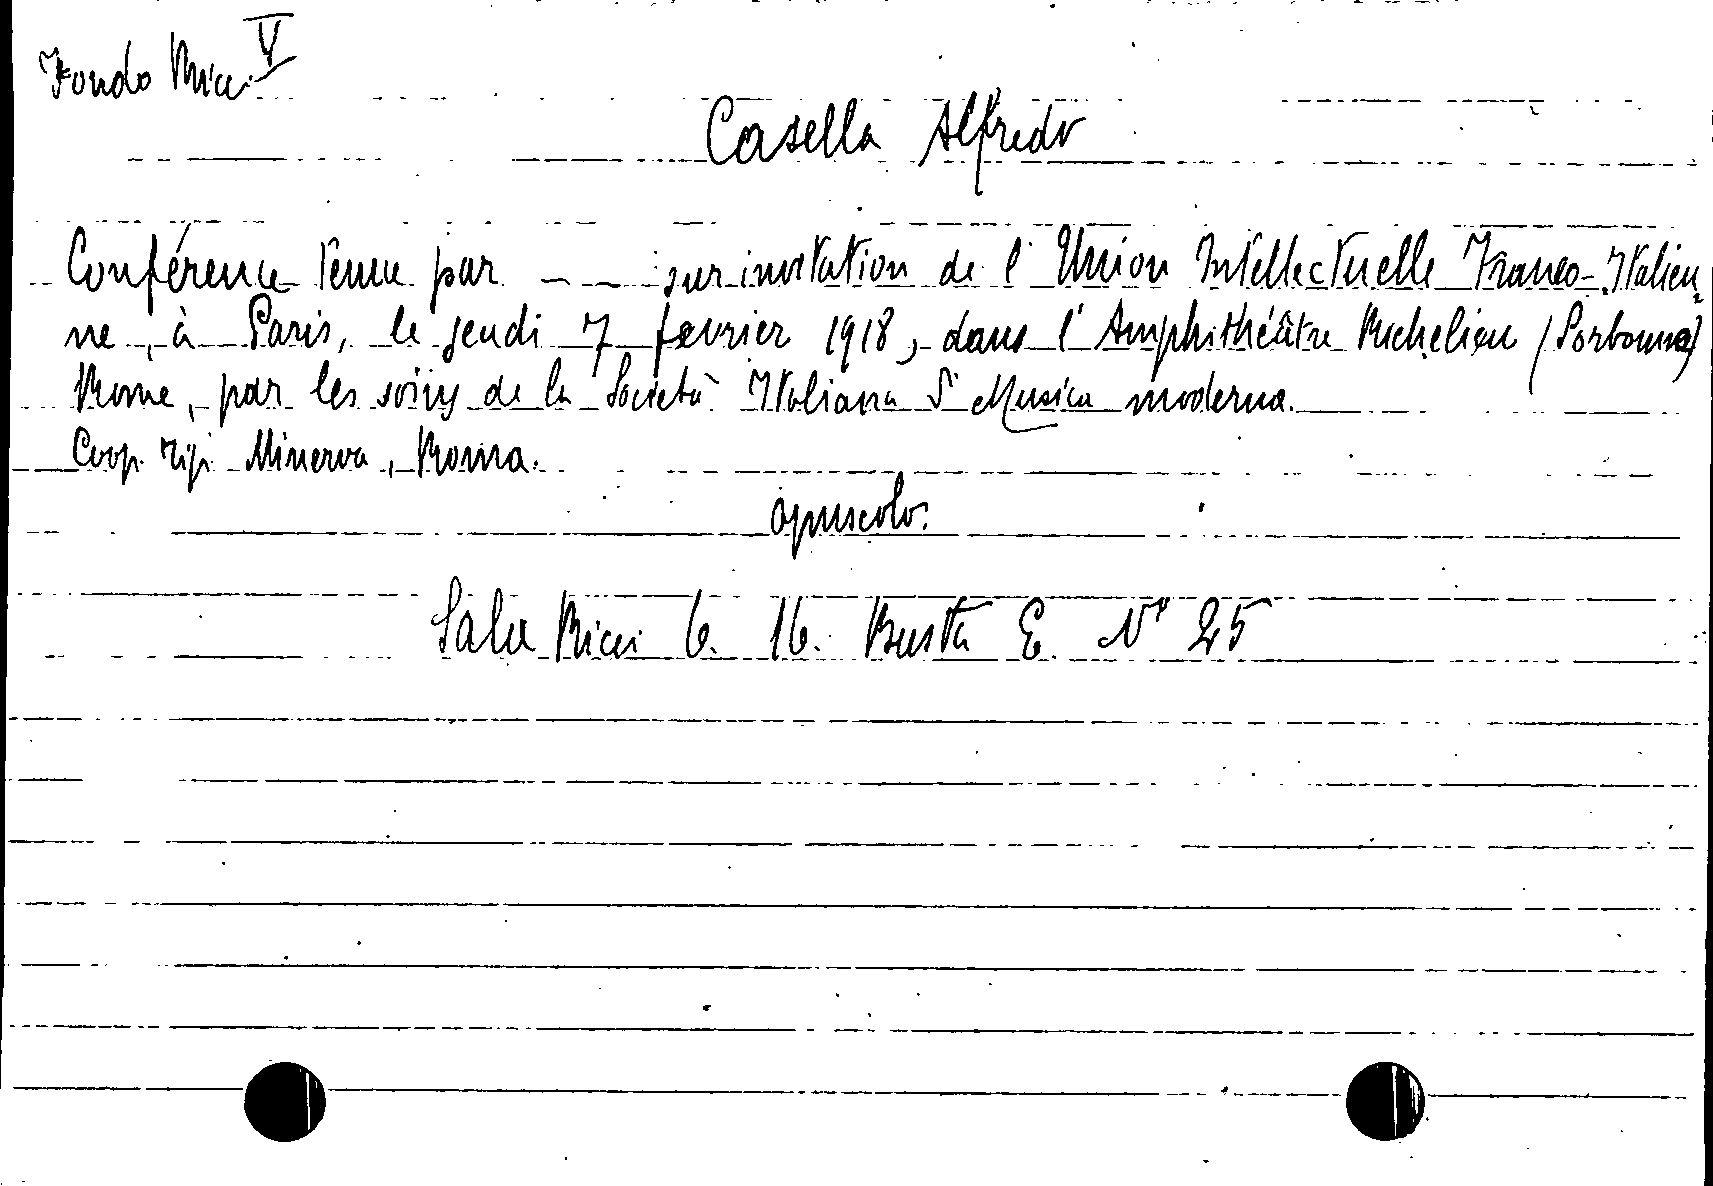 Fondo Ricci V
Casella Alfredo
Conférence tenue par — — sur invitation de l'Union Intellectuelle Franco-Italien-
ne, à Paris, le jeudi 7 février 1918, dans l'Amphithéâtre Richelieu (Sorbonne)
Rome, par les soins de la Società Italiana di Musica moderna.
Coop. Tip. Minerva, Roma.
opuscolo.
Sala Ricci 6. 16. Busta E. N° 25